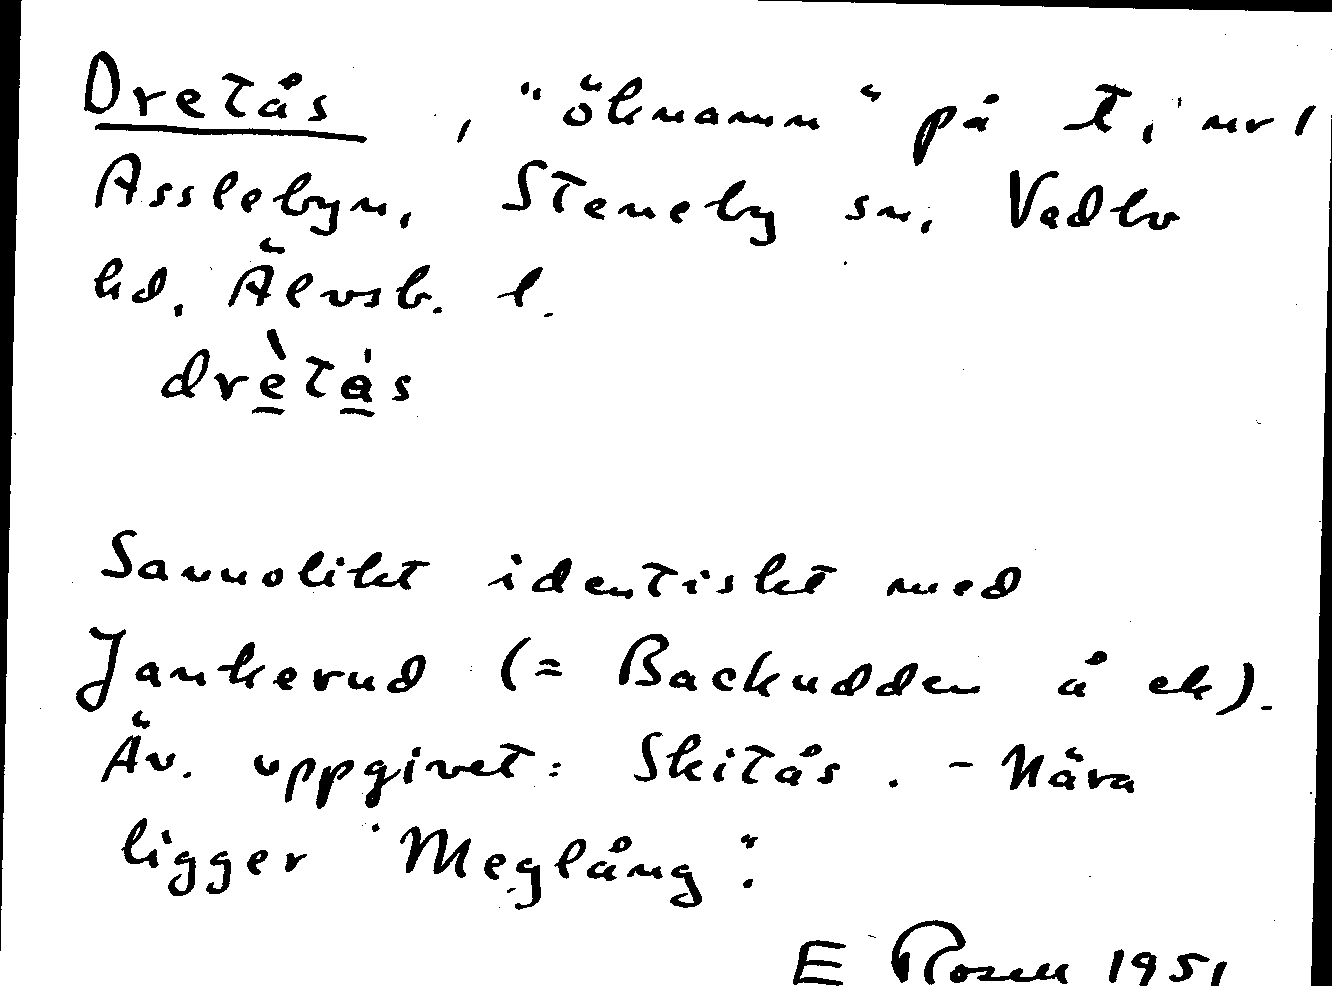 Dretås, "öknamn" på t. nr 1
Asslebyn, Steneby sn, Vedbo
hd, Älvsb. l.
drè̲tå̲s
Sannolikt identiskt med
Jankerud (= Backudden å ek).
Äv. uppgivet: Skitås. - Nära
ligger "Meglång".
E Rosell 1951